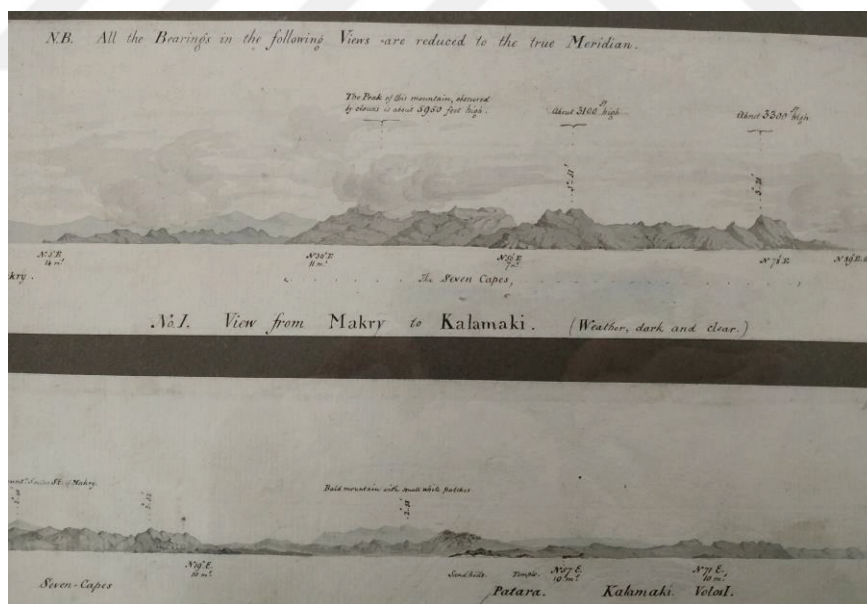 N.B. All the Bearings in the following Views are reduced to the true Meridian.
The Peak of this mountain, obscured
by clouds is about 5950 feet high.
About 3100 ft high
About 3300 ft high
N 5° E.
14 m.
11 m.
7 m.
N 78° E.
kry.
The Seven Capes,
No. I. View from Makry to Kalamaki. (Weather, dark and clear.)
Bald mountain with small white patches
N 19° E.
10 m.
Sand hills. Temple.
N 57 E.
N 71 E.
10 m.
Seven-Capes
Patara. Kalamaki VolosI.